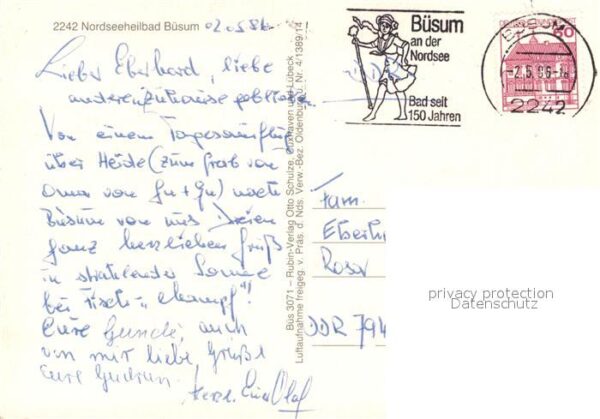 2242 Nordseeheilbad Büsum 02.05.86
Lieber Eberhard, liebe
anderen zuhause gebliebene
Von einem Tagesausflug
über Heide (zum Grab von
Oma von Gu + Gu) nach
Büsum von uns Dreien
ganz herzlichen Gruß
in strahlender Sonne
bei Fisch
Eure Gunde, auch
von mir liebe Grüße
Eure Gudrun.
Herzl. Euer Olaf
Büs 3071 – Rubin-Verlag Otto Schulze, Cuxhaven und Lübeck
Luftaufnahme freigeg. v. Präs. d. Nds. Verw.-Bez. Oldenburg u. Nr. 4/1389/14
Büsum
an der
Nordsee
Bad seit
150 Jahren
-2.5.86-
2242
60
Fam.
Eberh
DDR 794
privacy protection
Datenschutz